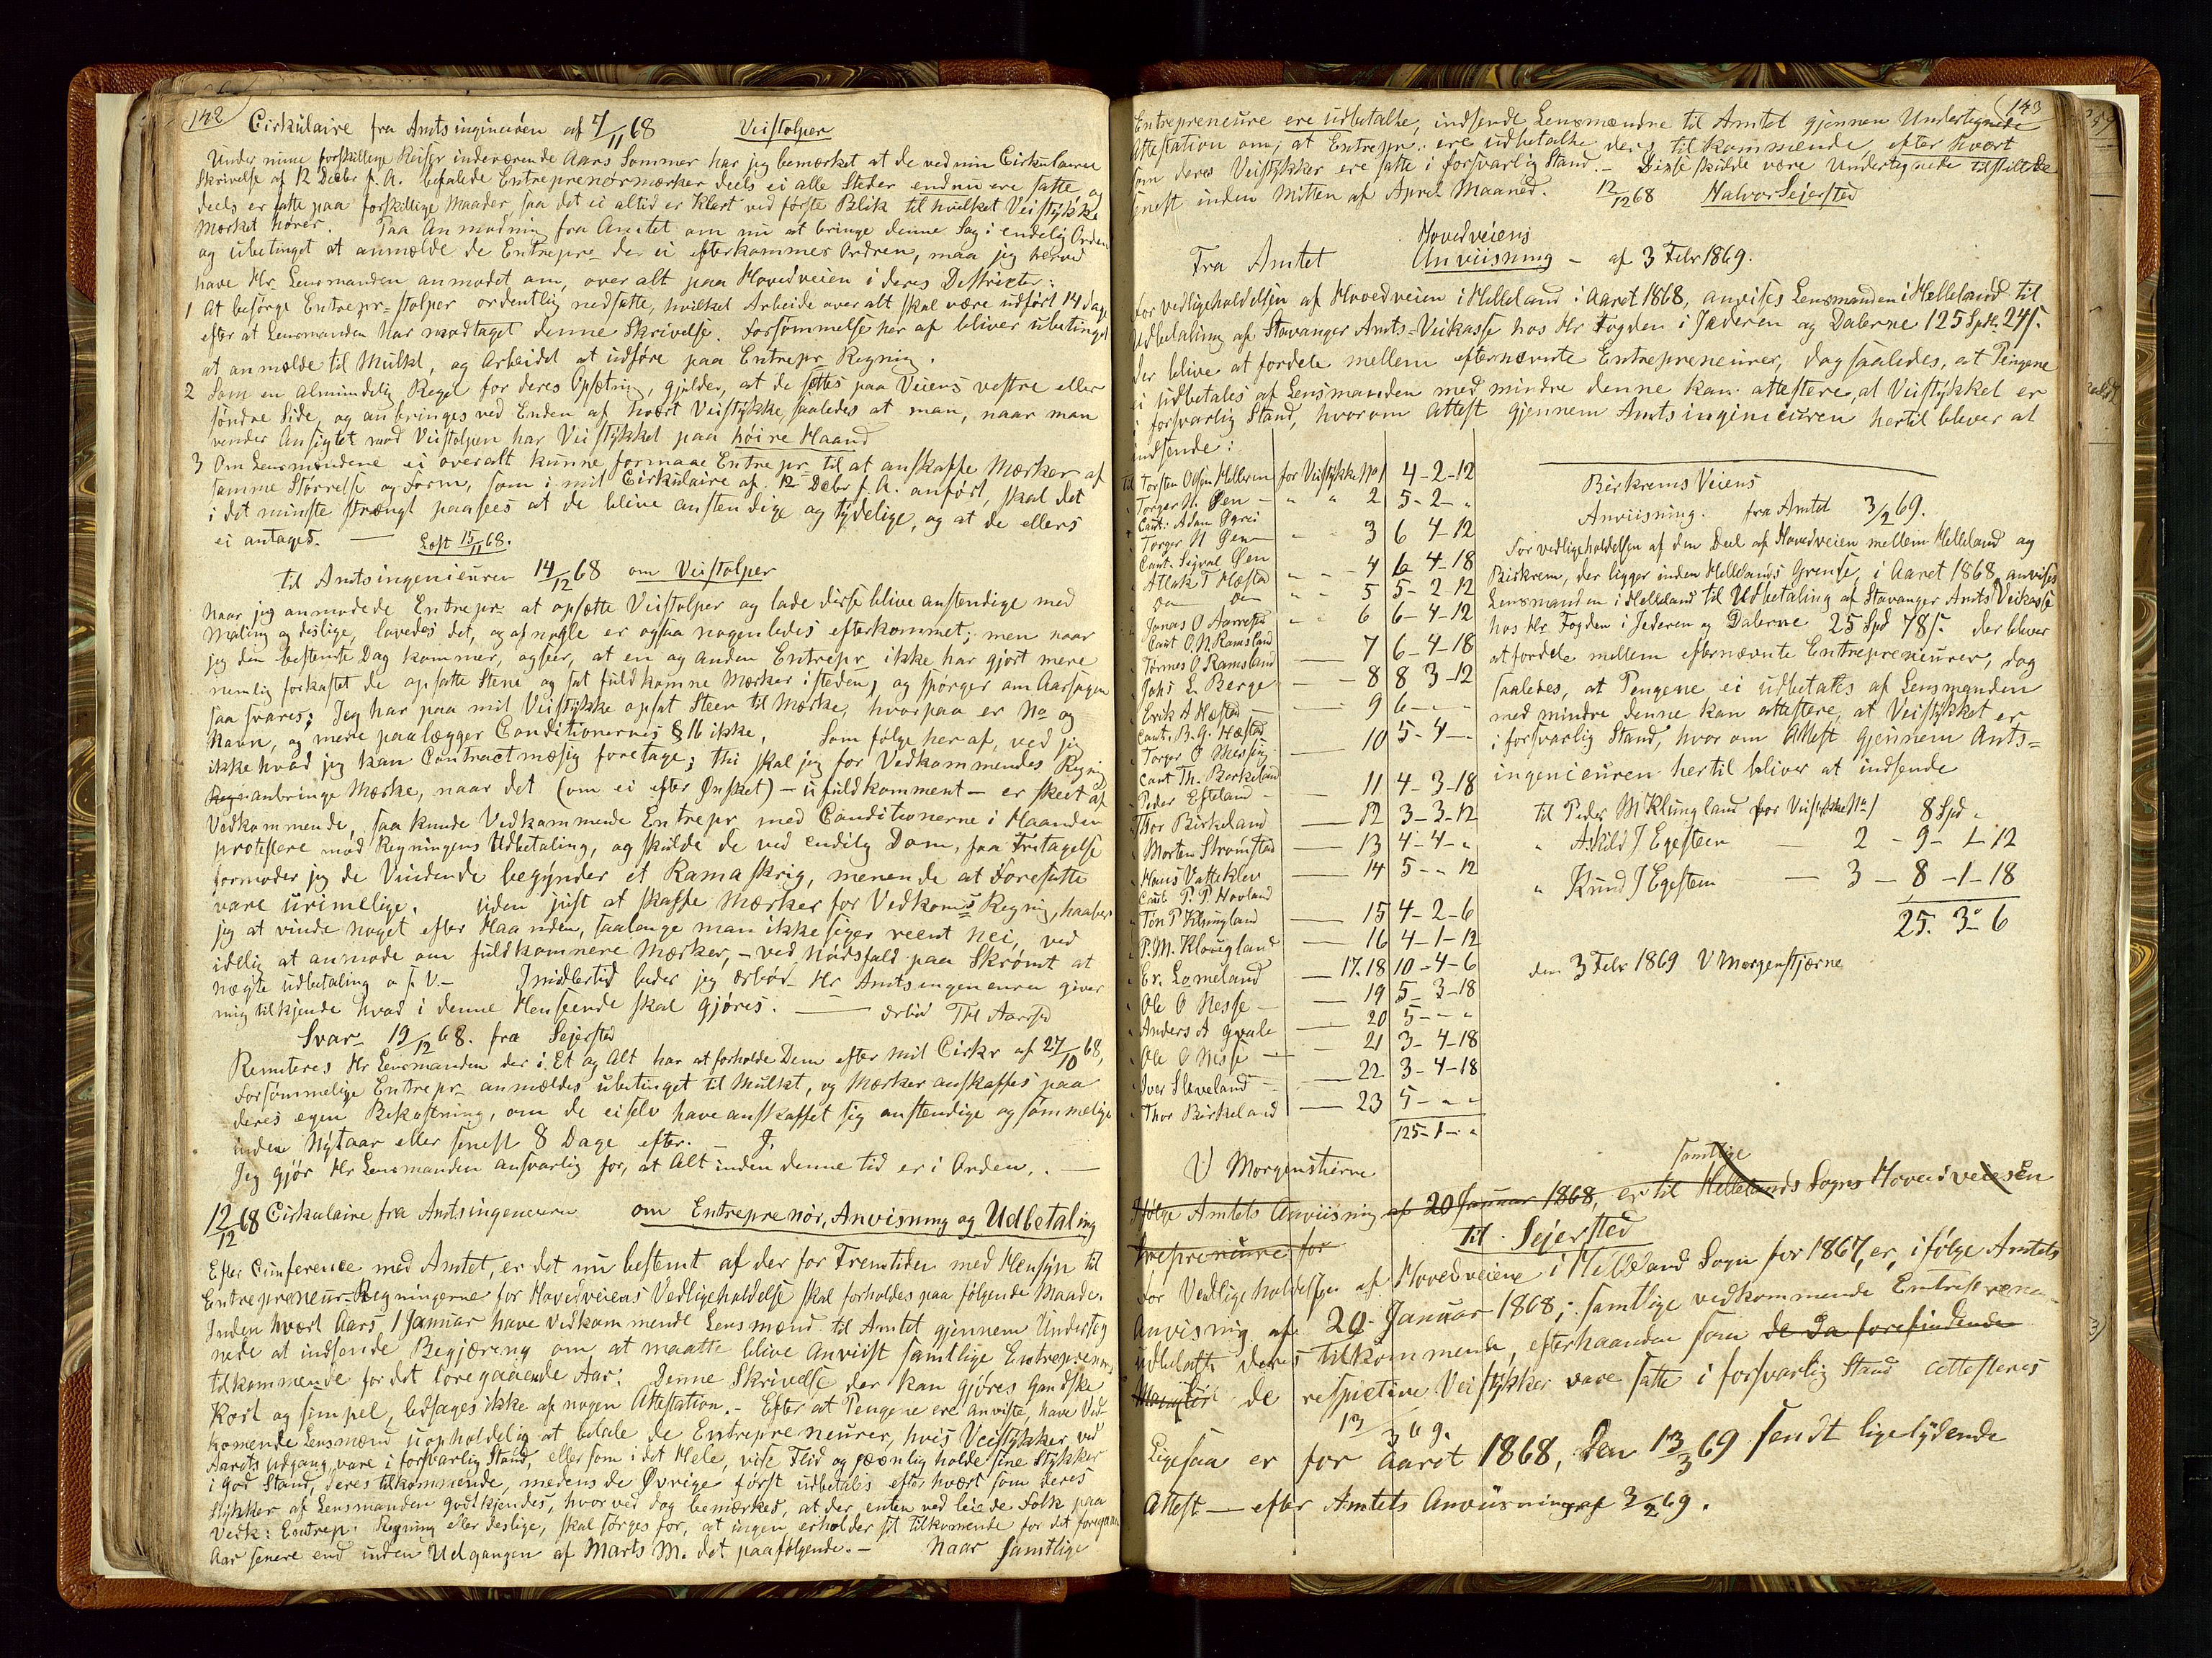 142
Cirkulaire fra Amtsingeniøren af 7/11 68 Veistolper
Under mine forskjellige Reiser indeværende Aars Sommer har jeg bemærket at de ved min Cirkulaire
Skrivelse af 12 Decbr f. A. befalede Entreprenørmærker deels ei alle Steder endnu ere satte og
deels er satte paa forskjellige Maader saa det ei altid er klart ved første Blik til hvilket Veistykke
Mærket hører. Paa Anmodning fra Amtet om nu at bringe denne Sag i endelig Orden
og ubetinget at anmelde de Entrepr_ der ei efterkommer Ordren, maa jeg herved
have Hr. Lensmanden anmodet om, overalt paa Hovedveien i deres Distrikter:
1 At besørge Entrepr= stolper ordentlig nedsatte, hvilket Arbeide overalt skal være udført 14 dage
efter at Lensmanden har modtaget denne Skrivelse. Forsømmelse her af bliver ubetinget
at anmelde til Mulkt, og Arbeidet at udføre paa Entrepr Regning.
2 Som en almindelig Regel for deres Opsætning, gjelder, at de sættes paa Veiens vestre eller
søndre Side, og anbringes ved Enden af hvært Veistykke, saaledes at man, naar man
vender Ansigtet mod Veistolpen har Veistykket paa høire Haand
3 Om Lensmændene ei overalt kunne formaae Entrepr_ til at anskaffe Mærker af
samme Størrelse og Form, som i mit Cirkulaire af 12 Decbr f. A. anført, skal det
i det mindste strængt paasees at de blive anstendige og tydelige, og at de ellers
ei antages. — Læst 15/11 68.
Til Amtsingenieuren 14/12 68 om Veistolper
Naar jeg anmodede Entrepr at opsætte Veistolper og lade disse blive anstendige med
Maling og deslige, lovedes det, og af nogle er ogsaa nogenledes efterkommet; men naar
jeg den bestemte Dag kommer, og seer, at en og anden Entrepr ikke har gjort mere
nemlig forkastet de opsatte Stene og sat fuldkomne Mærker isteden, og spørger om Aarsagen
saa svares; Jeg har paa mit Veistykke opsat Steen til Mærke, hvorpaa er No og
Navn, og mere paalægger Conditionernes § 16 ikke. Som følge her af, ved jeg
ikke hvad jeg kan Contractmæsig foretage; thi skal jeg for Vedkommendes Regning
anbringe Mærke, naar det (om ei efter Ønsket) – ufuldkomment – er skeet af
Vedkommende, saa kunde Vedkommende Entrepr med Conditionerne i Haanden
protestere mod Regningens Udbetaling, og skulde de ved endelig Dom, faa Fritagelse
formoder jeg de Vindende begynder et Ramaskrig, menende at Foresatte
vare urimelige. Uden just at skaffe Mærker for Vedkom=s Regning, haaber
jeg at vinde noget efter Haanden, saalenge man ikke siger reent nei, ved
idelig at anmode om fuldkomnere Mærker, – ved Nødsfald paa Skrømt at
nægte udbetaling o. s. v. – Imidlertid beder jeg ærbød_ Hr Amtsingenieuren giver
mig tilkjende hvad i denne Henseende skal gjøres. — ærbød Thl Aarstad
Svar 19/12 68. fra Sejersted
Remiteres Hr Lensmanden der i Et og Alt har at forholde Dem efter mit Cirkr af 27/10 68,
Forsømmelige Entrepr_ anmeldes ubetinget til Mulkt, og Mærker anskaffes paa
deres egen Bekostning, om de ei selv have anskaffet sig anstendige og sømmelige
inden Nytaar eller senest 8 Dage efter. – J.
Jeg gjør Hr Lensmanden ansvarlig for, at Alt inden denne tid er i Orden. . —
12/12 68 Cirkulaire fra Amtsingenieuren om Entreprenør, Anvisning og Udbetaling
Efter Conference med Amtet, er det nu bestemt af der for Fremtiden med Hensyn til
Entrepreneur-Regningerne for Hovedveiens Vedligeholdelse skal forholdes paa følgende Maade.
Inden hvert Aars 1 Januar have vedkommende Lensmænd til Amtet gjennem Underteg
nede at indsende Begjæring om at maatte blive anviist samtlige Entreprenør_
tilkommende for det foregaaende Aar: Denne Skrivelse der kan gjøres gandske
Kort og simpel, ledsages ikke af nogen Attestation. – Efter at Pengene ere anviste, have Ved-
kommende Lensmænd uopholdelig at betale de Entrepreneurer, hvis Veistykker ved
Aarets udgang vare i forsvarlig Stand, eller som i det Hele, vise Flid og jevnlig holde sine Stykker
i god Stand, deres tilkommende, medens de Øvrige først udbetales efterhvært som deres
Stykker af Lensmanden godtkjendes, hvorved dog bemærkes, at der, enten ved leiede Folk paa
Vedk: Entrep. Regning eller deslige, skal sørges for, at ingen erholder sit tilkomende for det foregaaende
Aar senere end inden Udgangen af Marts M. det paafølgende. – Naar samtlige
143
Entrepreneure ere udbetalte, indsende Lensmændne til Amtet gjennem Undertegnede
Attestation om, at Entrepr. ere udbetalte deres tilkommende, efter hvort
som deres Veistykker ere satte i forsvarlig Stand. – Disse skulde være Undertegnede tilstillede
senest inden Mitten af April Maaned. 12/12 68 Halvor Sejersted
Hovedveiens
Fra Amtet Anviisning – af 3 Febr 1869.
For vedligeholdelsen af Hovedveien i Helleland i Aaret 1868, anvises Lensmanden i Helleland til
Udbetaling af Stavanger Amts-Veikasse hos Hr Fogden i Jæderen og Dalerne 125 Spd. 24 s.
der blive at fordele mellem efternævnte Entrepreneurer, dog saaledes, at Pengene
ei udbetales af Lensmanden med mindre denne kan attestere, at Veistykket er
i forsvarlig Stand, hvorom Attest gjennem Amtsingenieuren hertil bliver at
indsende:
til Torsten Olsen Helleren for Veistykke No 1 4-2-12
" Torger N. Øen – " " 2 5-2-"
Caut: Adam Øgrei
" Torger N Øen – " – 3 6 4-12
Caut. Sigval Øen
" Atlak T Hæstad " – 4 6-4-18
" Do Do " " 5 5-2 12
" Jonas O Aarrestad " – 6 6-4-12
Caut O. N Ramsland
" Tørres O Ramsland — 7 6-4-18
" Johs L. Berge — 8 8 3-12
" Erik A Hæstad — 9 6 - -
Caut. B. G. Hæstad
" Torger O Messing — 10 5-4-
Caut Th. Berkeland
" Peder Efteland — 11 4-3-18
" Thor Birkeland — 12 3-3-12
" Morten Strømstad — 13 4-4-"
" Hans Vatteklev — 14 5 - - 12
Caut P. P. Hovland
" Ton P Klungland — 15 4-2-6
" P. M. Klougland — 16 4-1-12
" Er. Lomeland — 17.18 10-4-6
" Ole O Nesse – — 19 5-3-18
" Anders A Qvale — 20 5 - - "
" Ole O Nesse — 21 3-4-18
" Iver Sleveland — 22 3-4-18
" Thor Birkeland — 23 5 - - -
125-1-"
V Morgenstierne
Birkrems Veiens
Anviisning. fra Amtet 3/2 69.
For vedligeholdelsen af den Deel af Hovedveien mellem Helleland og
Birkrem, der ligger inden Hellelands Grense, i Aaret 1868, anvises
Lensmanden i Helleland til Udbetaling af Stavanger Amts Veikasse
hos Hr Fogden i Jederen og Dalerne 25 Spd 78 s. der bliver
at fordele mellem efternævnte Entrepreneurer, dog
saaledes, at Pengene ei udbetales af Lensmanden
med mindre denne kan attestere, at Veistykket er
i forsvarlig Stand, hvorom Attest gjennem Amts=
ingenieuren hertil bliver at indsende
til Peder M Klungland for Veistykke No 1 8 Spd "
" Askild J Egesteen — 2 - 9 - 1-12
" Knud J Egesteen — 3 - 8 - 1 - 18
25. 3- 6
den 3 Febr 1869 V Morgenstjerne
samtlige
Ifølge Amtets Anviisning af 20 Januar 1868, er til Hellelands Sogns Hovedveies En
trepreneure for
til Sejersted
For Vedligeholdelsen af Hovedveiene i Helleland Sogn for 1867, er, ifølge Amtets
Anvisning af 20 Januar 1868; samtlige vedkommende Entreprena-
udbetalt deres tilkommende, efterhaanden som de da forefindende
Mangler de respective Veistykker vare satte i forsvarlig Stand attesteres
13/3 69.
Ligesaa er for Aaret 1868, Den 13/3 69 sendt ligelydende
Attest – efter Amtets Anviisning af 3/2 69.